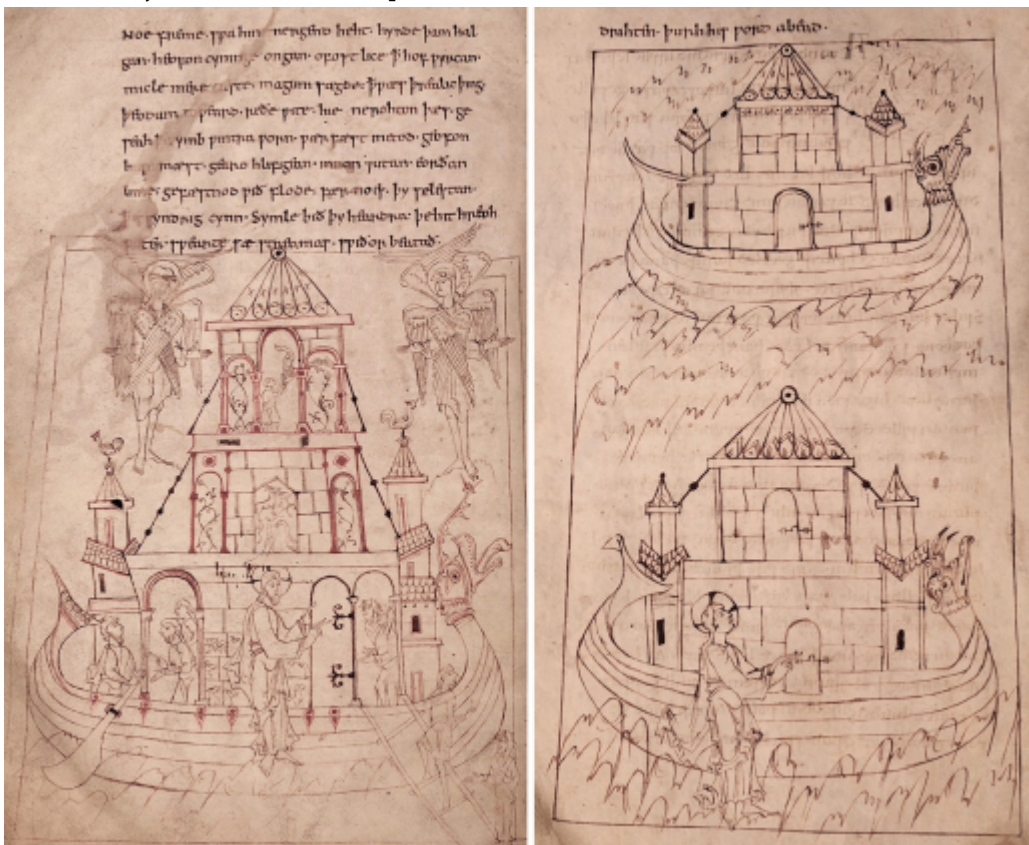 Noe freme. swa hine nergend heht. hyrde þam hal
gan. heofon cyninge ongan. ofostlice þ hof wyrcan.
micle mere magum sægde. þ wæs þrealic þing.
þeodum toweard. reðe wite. hie ne rohton þæs. ge
ymb wintra worn. wærfæst metod. geofon
mæst. gearo hlifigean. innan utan. eorðan
lime gefæstnod wið flode. fær noes. þy selestan.
syndrig cynn. Symle bið þy heardra þe hit hreoh
swearte sæ streamas. swiðor beatað.
drihten. þurh his word abead.